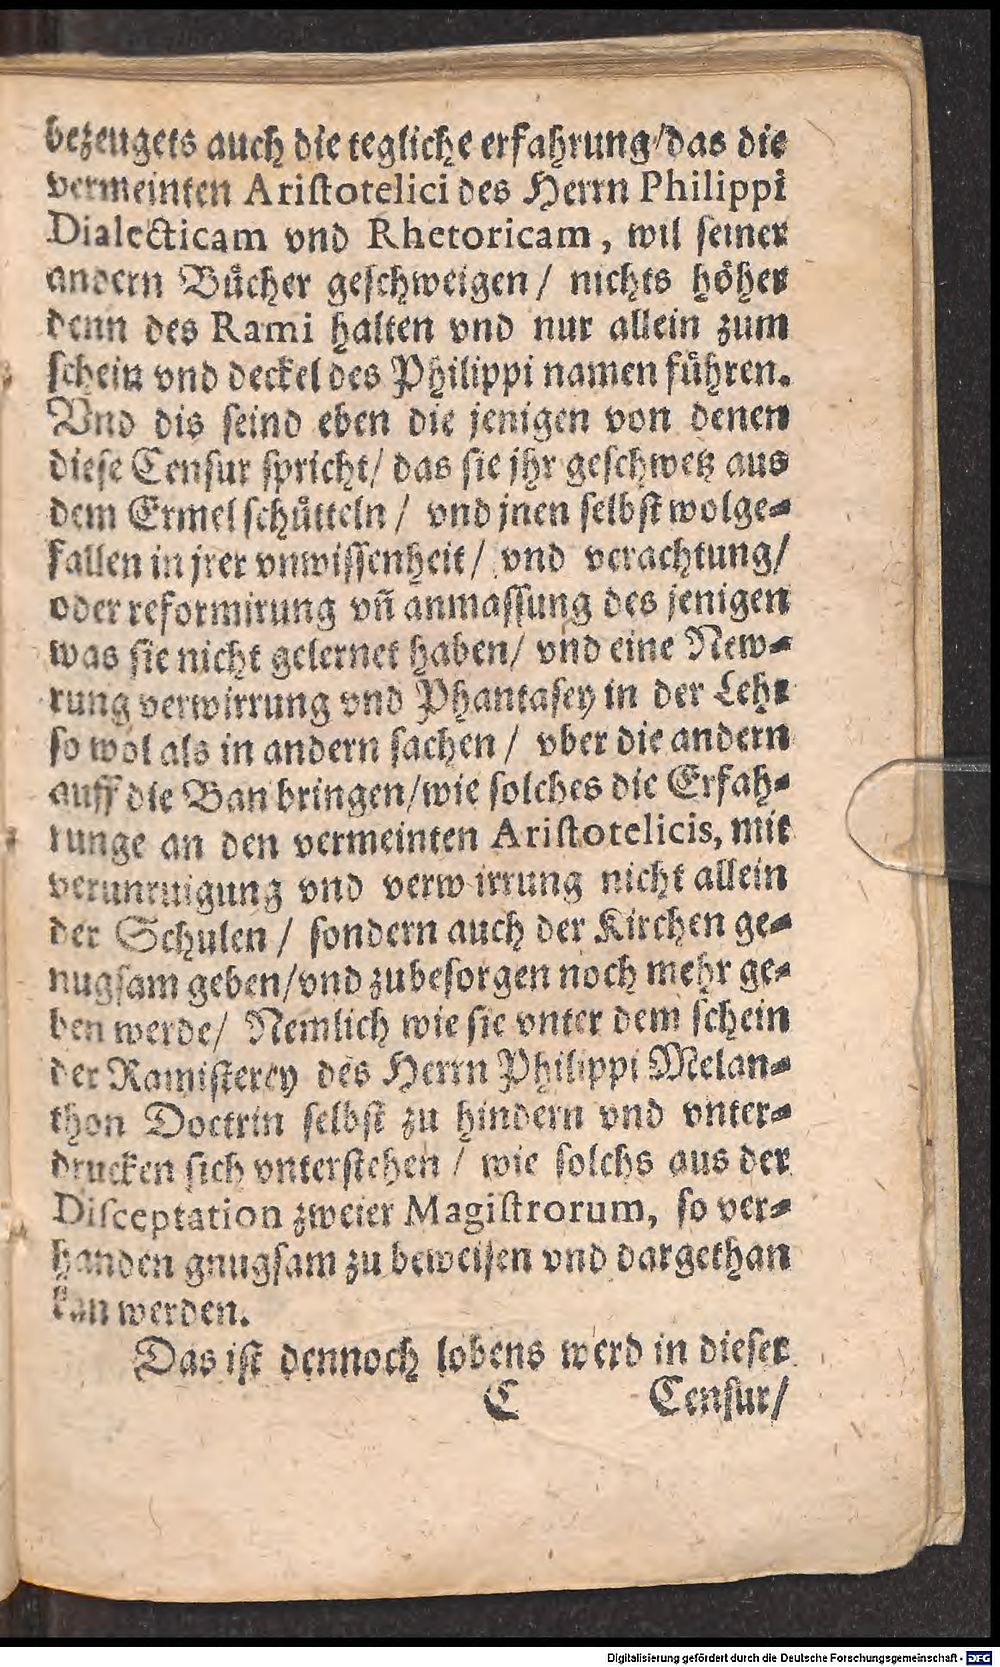 bezeugets auch die tegliche erfahrung/das die
vermeinten Ariſtotelici des Herrn Philippi
Dialecticam vnd Rhetoricam, wil ſeiner
andern Buͤcher geſchweigen / nichts hoͤher
denn des Rami halten vnd nur allein zum
ſchein vnd deckel des Philippi namen fuͤhren.
Vnd dis ſeind eben die jenigen von denen
dieſe Cenſur ſpricht/ das ſie jhr geſchwetz aus
dem Ermel ſchuͤtteln / vnd jnen ſelbſt wolge⸗
fallen in jrer vnwiſſenheit/ vnd verachtung/
oder reformirung vñ anmaſſung des jenigen
was ſie nicht gelernet haben/ vnd eine New⸗
rung verwirrung vnd Phantaſey in der Lehr
ſo wol als in andern ſachen / vber die andern
auff die Ban bringen/wie ſolches die Erfah⸗
runge an den vermeinten Ariſtotelicis, mit
verunruigung vnd verwirrung nicht allein
der Schulen / ſondern auch der Kirchen ge⸗
nugſam geben/vnd zubeſorgen noch mehr ge⸗
ben werde/ Nemlich wie ſie vnter dem ſchein
der Ramiſterey des Herrn Philippi Melan⸗
thon Doctrin ſelbſt zu hindern vnd vnter⸗
drucken ſich vnterſtehen / wie ſolchs aus der
Diſceptation zweier Magiſtrorum, ſo ver⸗
handen gnugſam zu beweiſen vnd dargethan
kan werden.
Das iſt dennoch lobens werd in dieſer
C Cenſur/
Digitalisierung gefördert durch die Deutsche Forschungsgemeinschaft - DFG